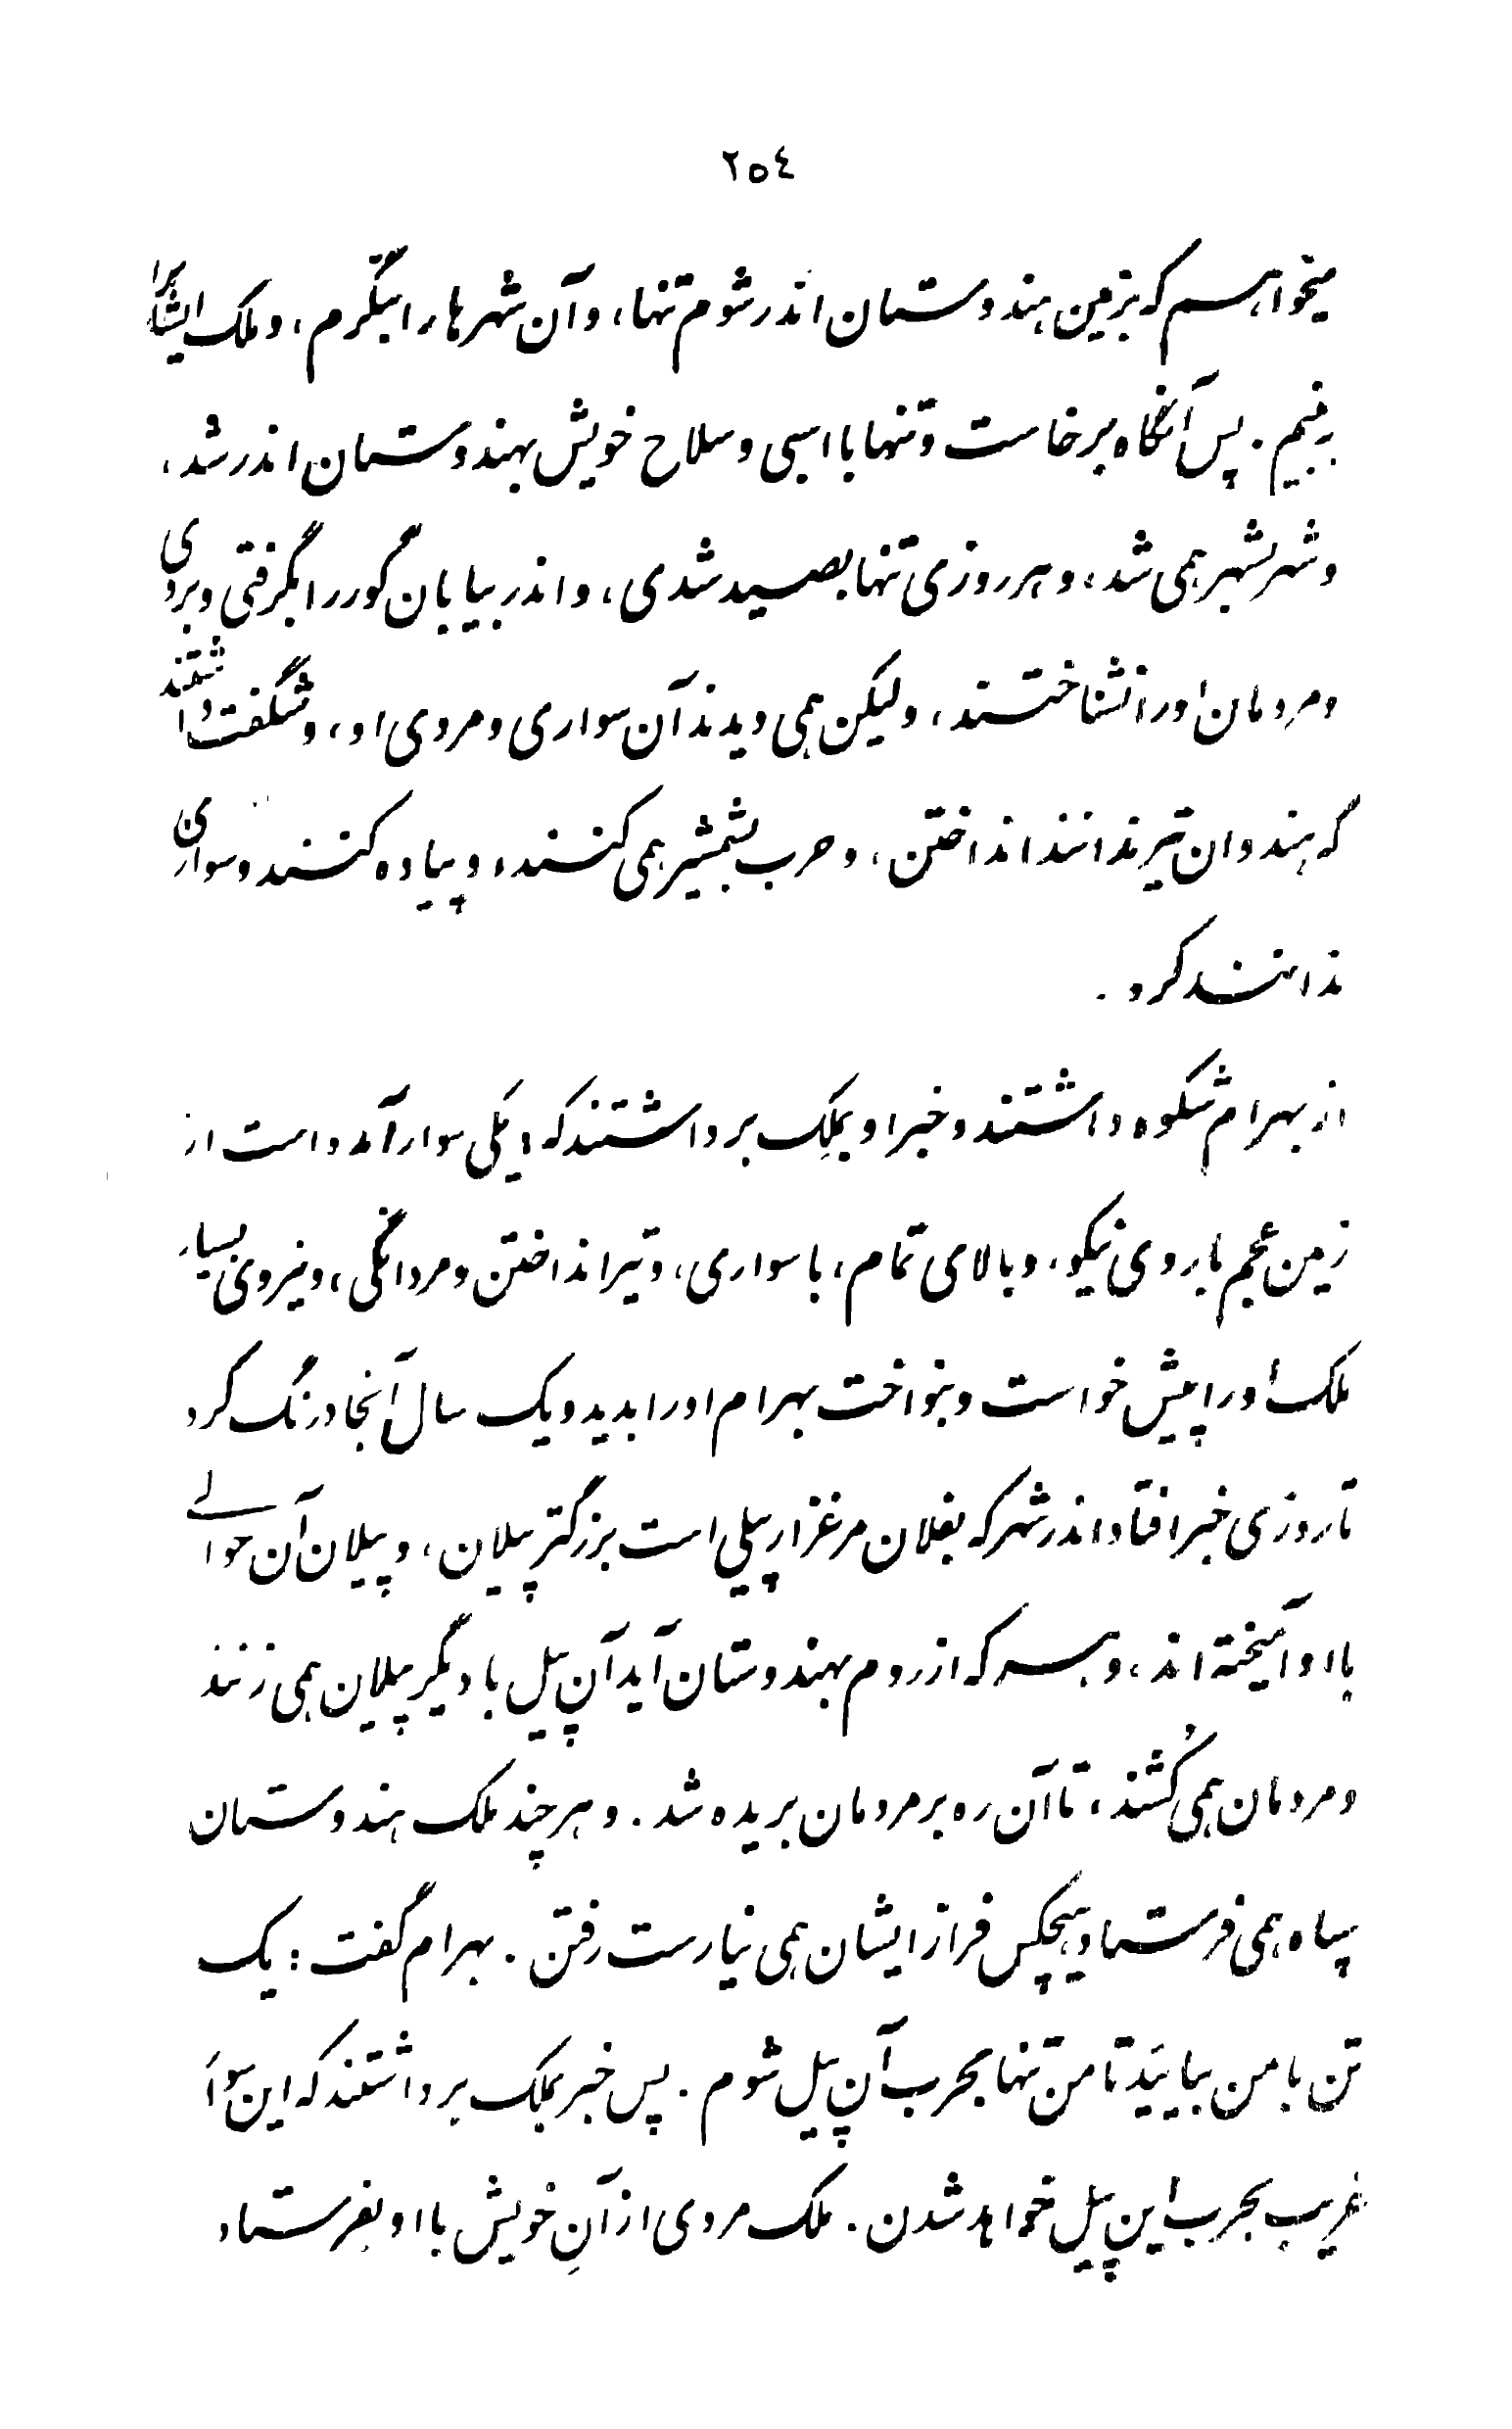 ٢٥٤
میخواهم که بزمین هندوستان اندر شوم تنها، و آن شهرها را بنگرم، و ملک ایشانرا
ببینم. پس آنگاه برخاست و تنها با اسبی و سلاح خویش بهندوستان اندر شد،
و شهر بشهر همی شد، و هر روزی تنها بصید شدی، و اندر بیابان گور را بگرفتی و بردی
و مردمان او را نشناختند، ولیکن همی دیدند آن سواری و مردی او، و شگفت داشتند
که هندوان تیر ندانند انداختن، و حرب بشمشیر همی کنند، و پیاده کنند و سواری
ندانند کرد.
از بهرام شکوه داشتند و خبر او بملِک برداشتند که: یکی سوار آمده است از
زمین عجم با روی نیکو، و بالای تمام، با سواری، و تیر انداختن و مردانگی، و نیروی بسیار
ملک او را پیش خواست و بنواخت بهرام او را بدید و یک سال آنجا درنگ کرد
تا روزی خبر افتاد اندر شهر که بفلان مرغزار پیلی است بزرگتر پیلان، و پیلان آن حوالی
با او آمیخته اند، و هر که از روم بهندوستان آید آن پیل با دیگر پیلان همی زنند
و مردمان همی کُشند، تا آن ره بر مردمان بریده شد. و هر چند ملک هندوستان
سپاه همی فرستاد هیچکس فراز ایشان همی نیارست رفتن. بهرام گفت: یک
تن با من بیایَید تا من تنها بحرب آن پیل شوم. پس خبر بملک برداشتند که این سوار
غریب بحرب این پیل خواهد شدن. ملک مردی از آنِ خویش با او بفرستاد